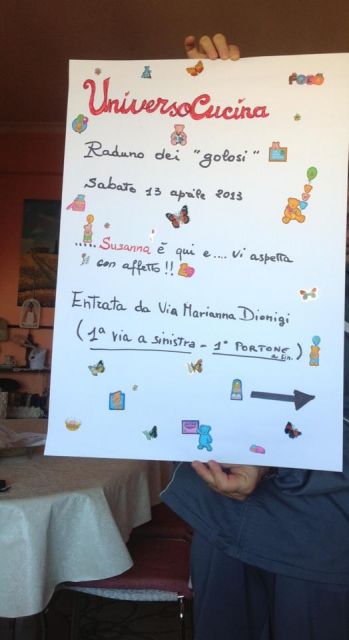 UniversoCucina
Raduno dei "golosi"
Sabato 13 aprile 2013
..... Susanna è qui e.... vi aspetta
con affetto!!
Entrata da Via Marianna Dionigi
(1ª via a sinistra - 1° PORTONE
a sin.)